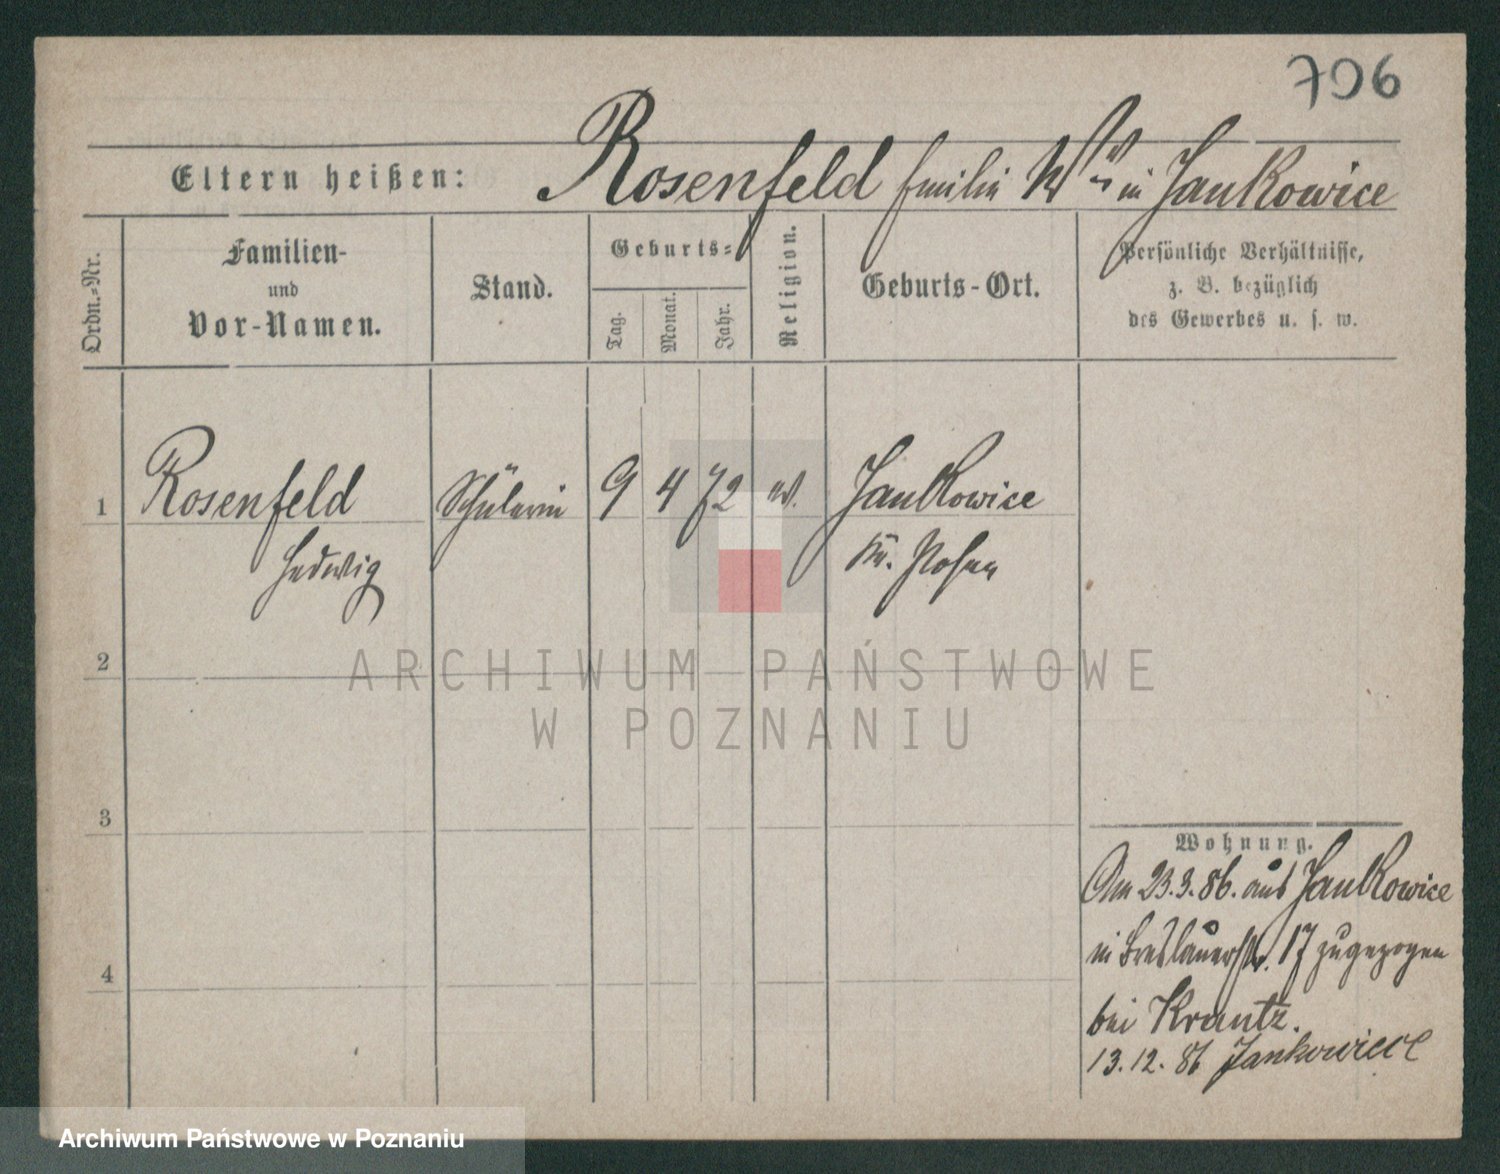 706
Eltern heißen: Rosenfeld Emilie in Jankowice
Ordn.-Nr.
Familien-
und
Vor-Namen.
Stand.
Geburts-
Tag.
Monat.
Jahr.
Religion.
Geburts-Ort.
Persönliche Verhältnisse,
z. B. bezüglich
des Gewerbes u. s. w.
1 Rosenfeld Schülerin 9 4 72 Jankowice
Hedwig Kr. Posen
2
ARCHIWUM PAŃSTWOWE
W POZNANIU
3
Wohnung.
Am 23.3.86. aus Jankowice
in Breslauerstr. 17 zugezogen
4
bei Krantz.
13.12.86 Jankowice
Archiwum Państwowe w Poznaniu